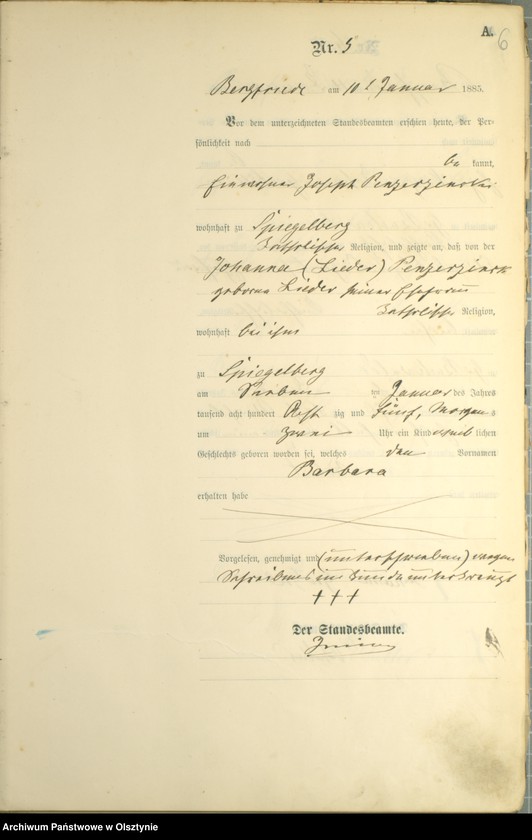 A.
6
Nr. 5
Bergfriede am 10t Januar 1885.
Vor dem unterzeichneten Standesbeamten erschien heute, der Per-
sönlichkeit nach
be kannt,
Einwohner Joseph
wohnhaft zu Spiegelberg
katholischer Religion, und zeigte an, daß von der
Johanna (Lieder)
geborene Lieder seiner Ehefrau
katholischer Religion,
wohnhaft bei ihm
zu Spiegelberg
am Sieben ten Januar des Jahres
tausend acht hundert Acht zig und fünf, Morgens
um zwei Uhr ein Kind weib lichen
Geschlechts geboren worden sei, welches den Vornamen
Barbara
erhalten habe
Vorgelesen, genehmigt und (unterschrieben) wegen
Schreibens unkunde unterkreuzt
+++
Der Standesbeamte.
Archiwum Państwowe w Olsztynie